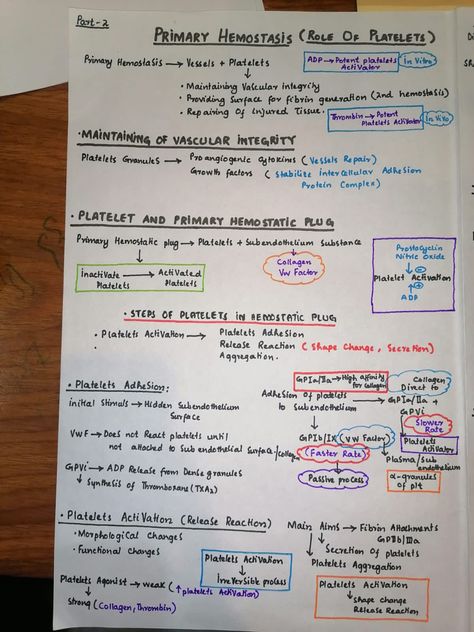 Part-2
PRIMARY HEMOSTASIS (ROLE OF PLATELETS)
Primary Hemostasis → Vessels + Platelets
ADP → Potent platelets Activator
in Vitro
• Maintaining Vascular integrity
• Providing Surface for fibrin generation (2nd hemostasis)
• Repairing of Injured Tissue.
Thrombin → Potent Platelets Activator
in Vivo
• MAINTAINING OF VASCULAR INTEGRITY
Platelets Granules → Proangiogenic Cytokines (Vessels Repair)
Growth factors (Stabilize intercellular Adhesion
Protein Complex)
• PLATELET AND PRIMARY HEMOSTATIC PLUG
Primary Hemostatic plug → Platelets + Subendothelium Substance
Collagen
Vw Factor
inactivate Platelets → Activated Platelets
Prostacyclin
Nitric Oxide
⊖
Platelet Activation
⊕
ADP
• STEPS OF PLATELETS IN HEMOSTATIC PLUG
• Platelets Activation → Platelets Adhesion
Release Reaction (Shape Change, Secretion)
Aggregation.
• Platelets Adhesion:
initial Stimuls → Hidden Subendothelium
Surface
VWF → Does not React platelets until
not attached to Sub endothelial Surface/collagen
GPVi → ADP Release from Dense granules
↓ synthesis of Thromboxane (TXA2)
GPIa/IIa → High affinity for Collagen
Collagen Direct to
Adhesion of platelets to Subendothelium → GPIa/IIa + GPVi
Slower Rate
Platelets Activator
GPIb/IX (VW Factor)
(Faster Rate)
Passive process
Plasma/Sub endothelium
α-granules of plt
• Platelets Activation (Release Reaction)
• Morphological Changes
• Functional Changes
Platelets Activation
↓
irreversible process
Platelets Agonist → weak (↑ platelets Activation)
↓
Strong (Collagen, Thrombin)
Main Aims → Fibrin Attachments
GPIIb/IIIa
Secretion of platelets
Platelets Aggregation
Platelets Activation
↳ Shape change
Release Reaction